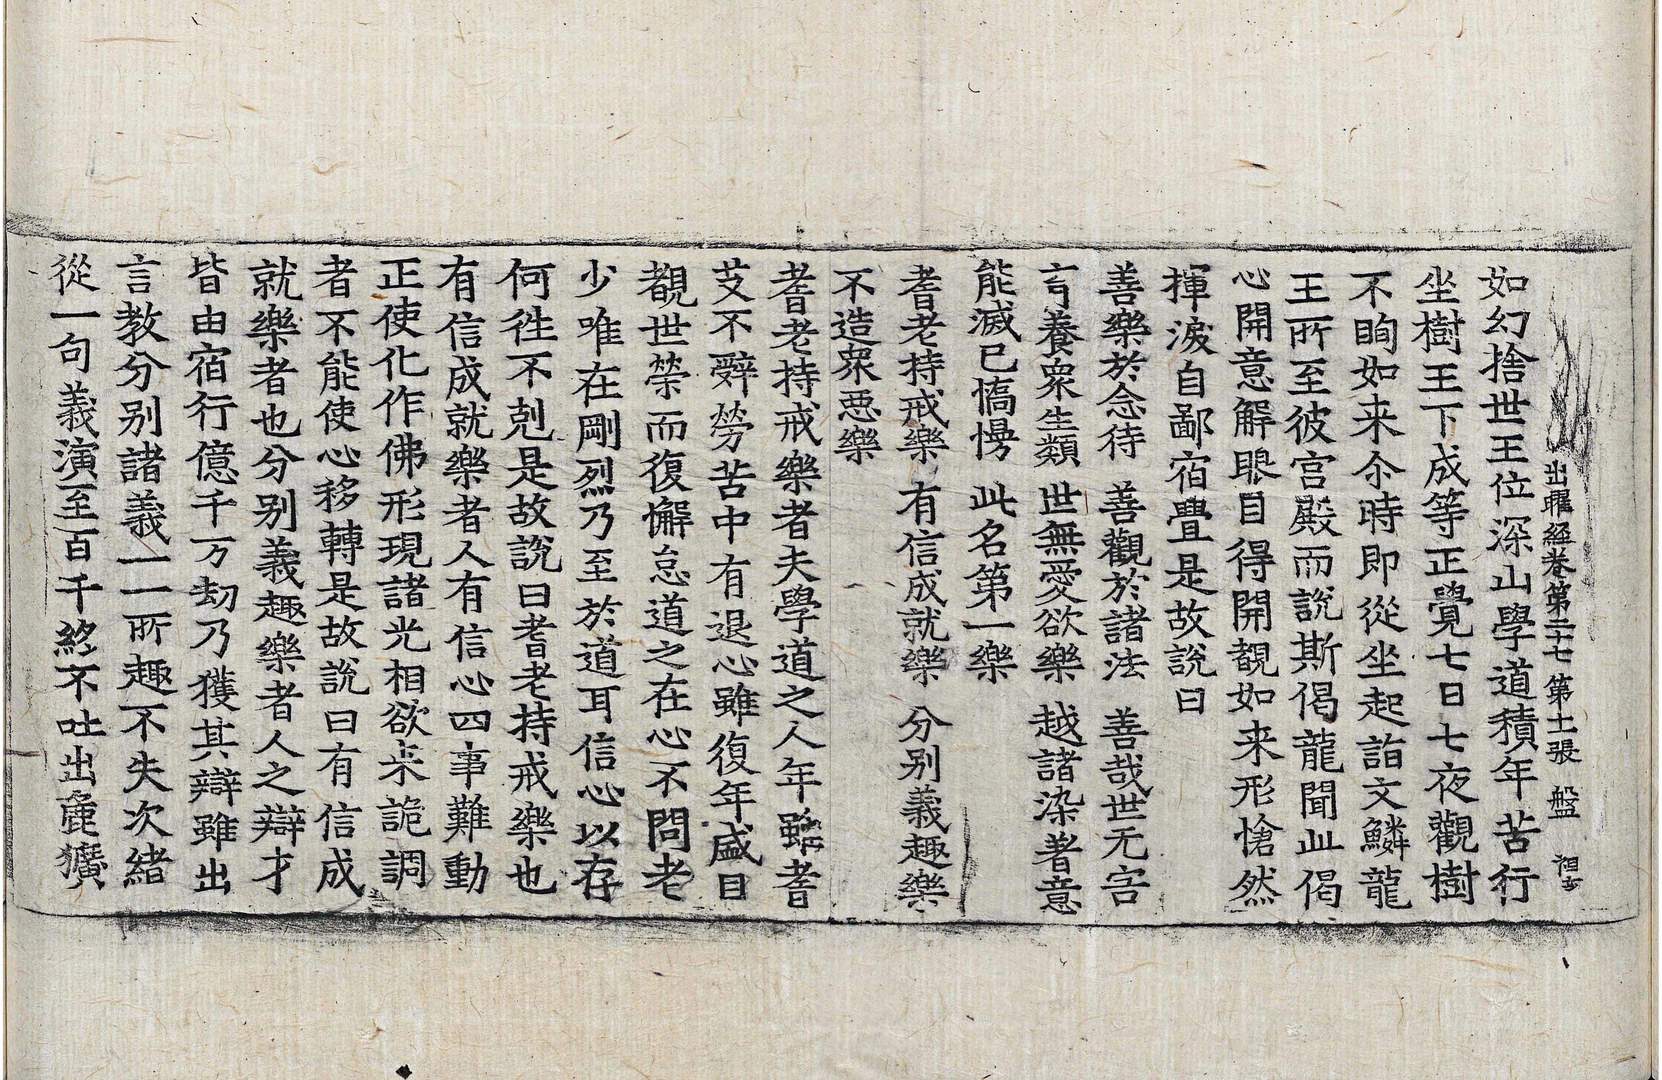 出曜經卷第二十七 第十一張 盤
如幻捨世王位深山學道積年苦行
坐樹王下成等正覺七日七夜觀樹
不眴如来尒時即從坐起詣文鱗龍
王所至彼宫殿而說斯偈龍聞此偈
心開意解眼目得開覩如来形愴然
揮淚自鄙宿舋是故說曰
善樂於念待 善觀於諸法 善哉世无害
育養衆生類 世無愛欲樂 越諸染著意
能滅已憍慢 此名第一樂
耆老持戒樂 有信成就樂 分别義趣樂
不造衆惡樂
耆老持戒樂者夫學道之人年雖耆
艾不辭勞苦中有退心雖復年盛目
覩世榮而復懈怠道之在心不問老
少唯在剛烈乃至於道耳信心以存
何徃不剋是故說曰耆老持戒樂也
有信成就樂者人有信心四事難動
正使化作佛形現諸光相欲来詭調
者不能使心移轉是故說曰有信成
就樂者也分别義趣樂者人之辯才
皆由宿行億千万劫乃獲其辯雖出
言教分别諸義一一所趣不失次緒
從一句義演至百千終不吐出麁獷